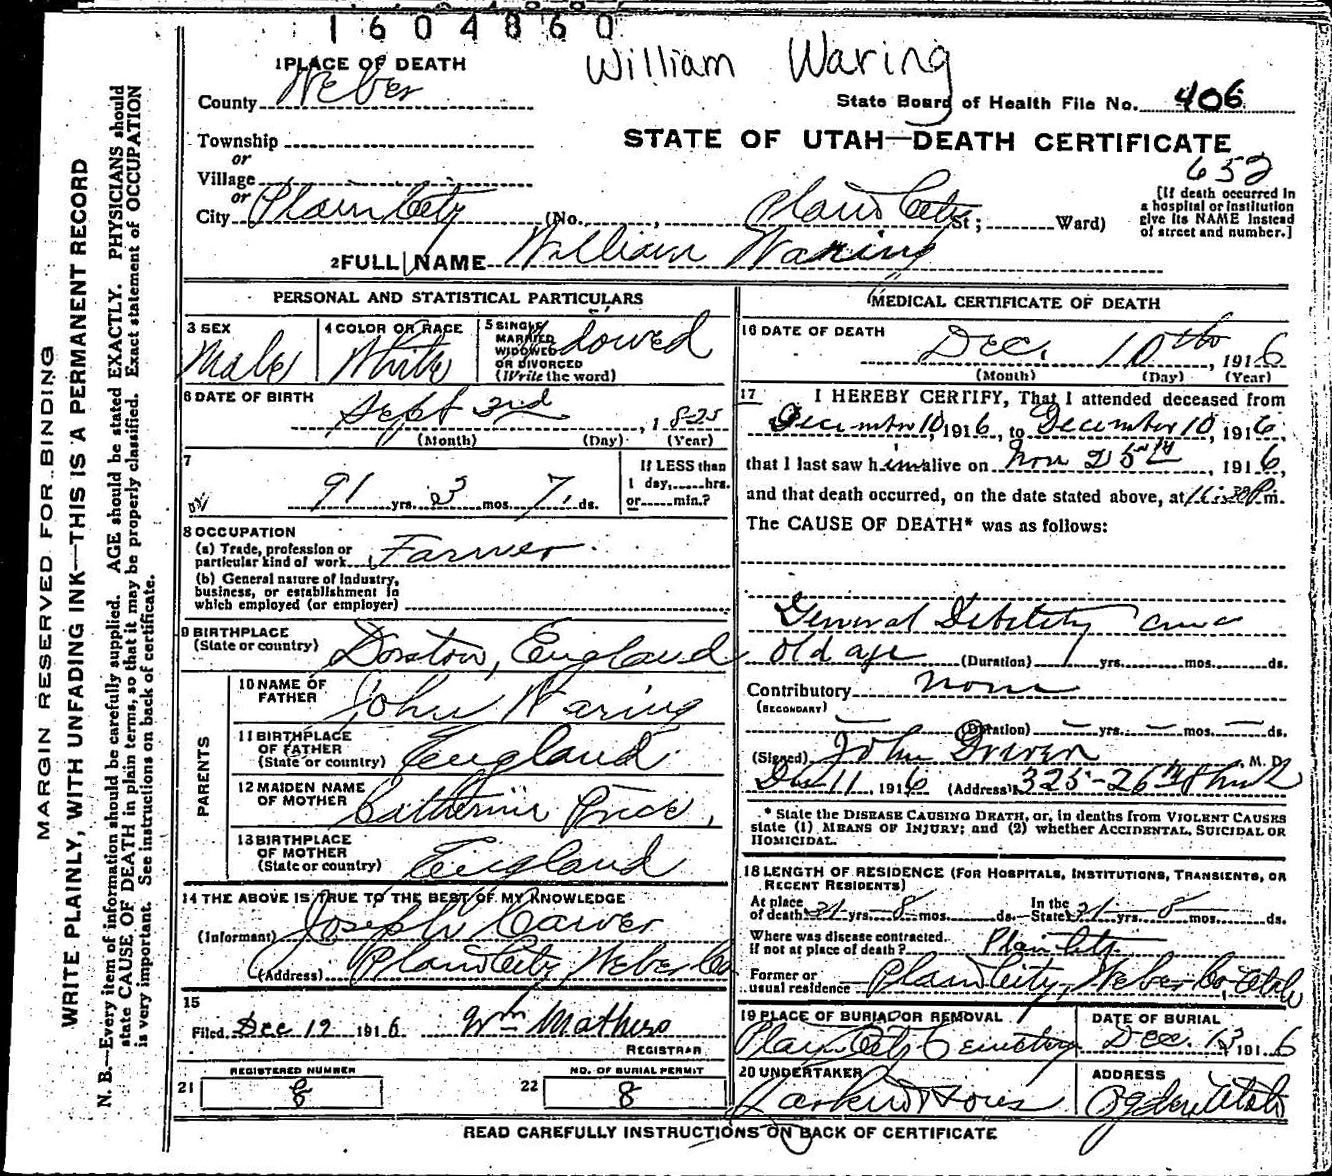 1604860
William Waring
1 PLACE OF DEATH
County Weber
State Board of Health File No. 406
Township
or
Village
or
City Plain City (No. , Plain City St; Ward)
STATE OF UTAH—DEATH CERTIFICATE
652
[If death occurred in
a hospital or institution
give its NAME instead
of street and number.]
2 FULL NAME William Waring
PERSONAL AND STATISTICAL PARTICULARS
3 SEX
Male
4 COLOR OR RACE
White
5 SINGLE
MARRIED
WIDOWED
OR DIVORCED
(Write the word)
Widowed
6 DATE OF BIRTH
Sept 3rd, 1825
(Month) (Day) (Year)
7
91 yrs. 3 mos. 7 ds.
If LESS than
1 day, hrs.
or min.?
8 OCCUPATION
(a) Trade, profession or
particular kind of work Farmer
(b) General nature of Industry,
business, or establishment in
which employed (or employer)
9 BIRTHPLACE
(State or country) England
PARENTS
10 NAME OF
FATHER John Waring
11 BIRTHPLACE
OF FATHER
(State or country) England
12 MAIDEN NAME
OF MOTHER Catherine Price
13 BIRTHPLACE
OF MOTHER
(State or country) England
14 THE ABOVE IS TRUE TO THE BEST OF MY KNOWLEDGE
(Informant) Joseph Carver
(Address) Plain City Weber Co
15
Filed Dec 12 1916 Wm Mathers
REGISTRAR
21 REGISTERED NUMBER
8
22 NO. OF BURIAL PERMIT
8
MEDICAL CERTIFICATE OF DEATH
16 DATE OF DEATH
Dec. 10th, 1916
(Month) (Day) (Year)
17 I HEREBY CERTIFY, That I attended deceased from
December 10, 1916, to December 10, 1916,
that I last saw him alive on Nov 25th, 1916,
and that death occurred, on the date stated above, at 11:30 P m.
The CAUSE OF DEATH* was as follows:
General Debility
old age (Duration) yrs. mos. ds.
Contributory none
(SECONDARY)
(Duration) — yrs. — mos. — ds.
(Signed) John Driver M. D.
Dec 11, 1916 (Address) 325-26th
* State the DISEASE CAUSING DEATH, or, in deaths from VIOLENT CAUSES
state (1) MEANS OF INJURY; and (2) whether ACCIDENTAL, SUICIDAL OR
HOMICIDAL.
18 LENGTH OF RESIDENCE (FOR HOSPITALS, INSTITUTIONS, TRANSIENTS, OR
RECENT RESIDENTS)
At place
of death yrs. 8 mos. ds.
In the
State yrs. mos. ds.
Where was disease contracted
if not at place of death? Plain City
Former or
usual residence Plain City, Weber Co, Utah
19 PLACE OF BURIAL OR REMOVAL
Plain City Cemetery
DATE OF BURIAL
Dec. 13 1916
20 UNDERTAKER
Larkin & Sons
ADDRESS
Ogden Utah
READ CAREFULLY INSTRUCTIONS ON BACK OF CERTIFICATE
MARGIN RESERVED FOR BINDING
WRITE PLAINLY, WITH UNFADING INK—THIS IS A PERMANENT RECORD
N. B.—Every item of information should be carefully supplied. AGE should be stated EXACTLY. PHYSICIANS should
state CAUSE OF DEATH in plain terms, so that it may be properly classified. Exact statement of OCCUPATION
is very important. See instructions on back of certificate.